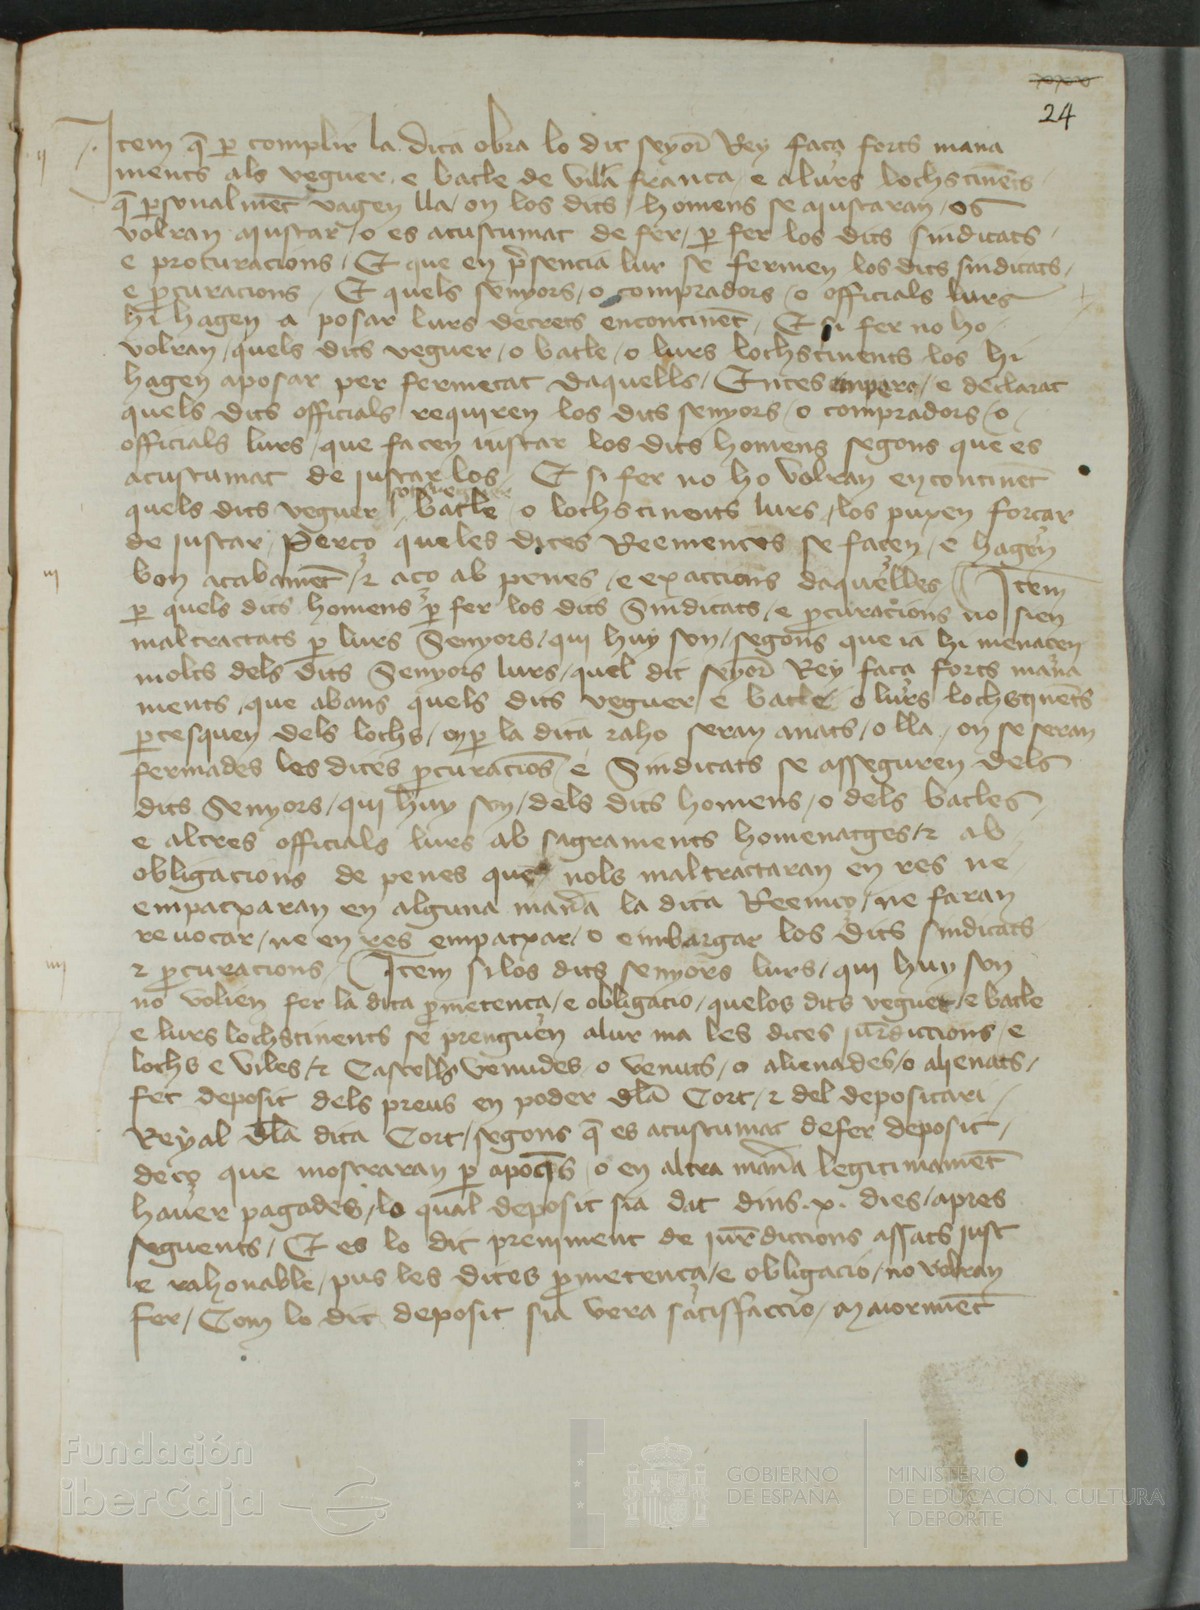 24
ij
Item q̄ p complir la dita obra lo dit seyor Rey faça forts mana
ments als veguer e batle de vilafranca e a lurs lochstinēts
q̄ psonalmēt vagen lla on los dits homens se aiustaran os
volran aiustar o es acustumat de fer p fer los dits sindicats
e procuracions Et que en psencia lur se fermen los dits sindicats
e pcuracions Et quels senyors o compradors o officials lurs
hi hagen a posar lurs decrets encontinēt Et si fer no ho
volran quels dits veguer o batle o lurs lochstinents los hi
hagen aposar per fermetat daquells Entes empero e declarat
quels dits officials requiren los dits senyors o compradors o
officials lurs que facen iustar los dits homens segons que es
acustumat de iustar los Et si fer no ho volran encontinēt
quels dits veguer sotsveguer batle o lochstinents lurs los puxen forçar
de iustar Perço que les dites Reemences se facen e hagen
bon acabamēt ⁊ aço ab penes e exaccions daquelles Item
iij
p quels dits homens p fer los dits Sindicats e pcuracions no sien
maltractats p lurs Senyors qui huy son segons que ia hi menacen
molts dels dits Senyors lurs quel dit seyor Rey faça forts mana
ments que abans quels dits veguer e batle o lurs lochstinēts
ptesquen dels lochs on p la dita raho seran anats o lla on se seran
fermades les dites pcuracions e Sindicats se asseguren dels
dits Senyors qui huy son dels dits homens o dels batles
e altres officials lurs ab sagraments homenatges ⁊ ab
obligacions de penes que nols maltractaran en res ne
empatxaran en alguna manā la dita Reemço ne faran
revocar ne en res empatxar o embargar los dits sindicats
iiij
⁊ pcuracions Item si los dits senyors lurs qui huy son
no volien fer la dita pmetença e obligacio quelos dits veguer e batle
e lurs lochstinents se prenguen a lur ma les dites iurdiccions e
lochs e viles ⁊ Castells venudes o venuts o alienades o alienats
fet deposit dels preus en poder dla Cort ⁊ del depositari
Reyal dla dita Cort segons q̄ es acustumat defer deposit
deço que mostraran p apoq̄s o en altra manā legitimamēt
haver pagades lo qual deposit sia dat dins .x. dies apres
seguents Et es lo dit preniment de iurediccions assats iust
e rahonable pus les dites pmetença e obligacio no volran
fer Com lo dit deposit sia vera satisfaccio maiormēt
Fundación
iberCaja
GOBIERNO
DE ESPAÑA
MINISTERIO
DE EDUCACIÓN, CULTURA
Y DEPORTE